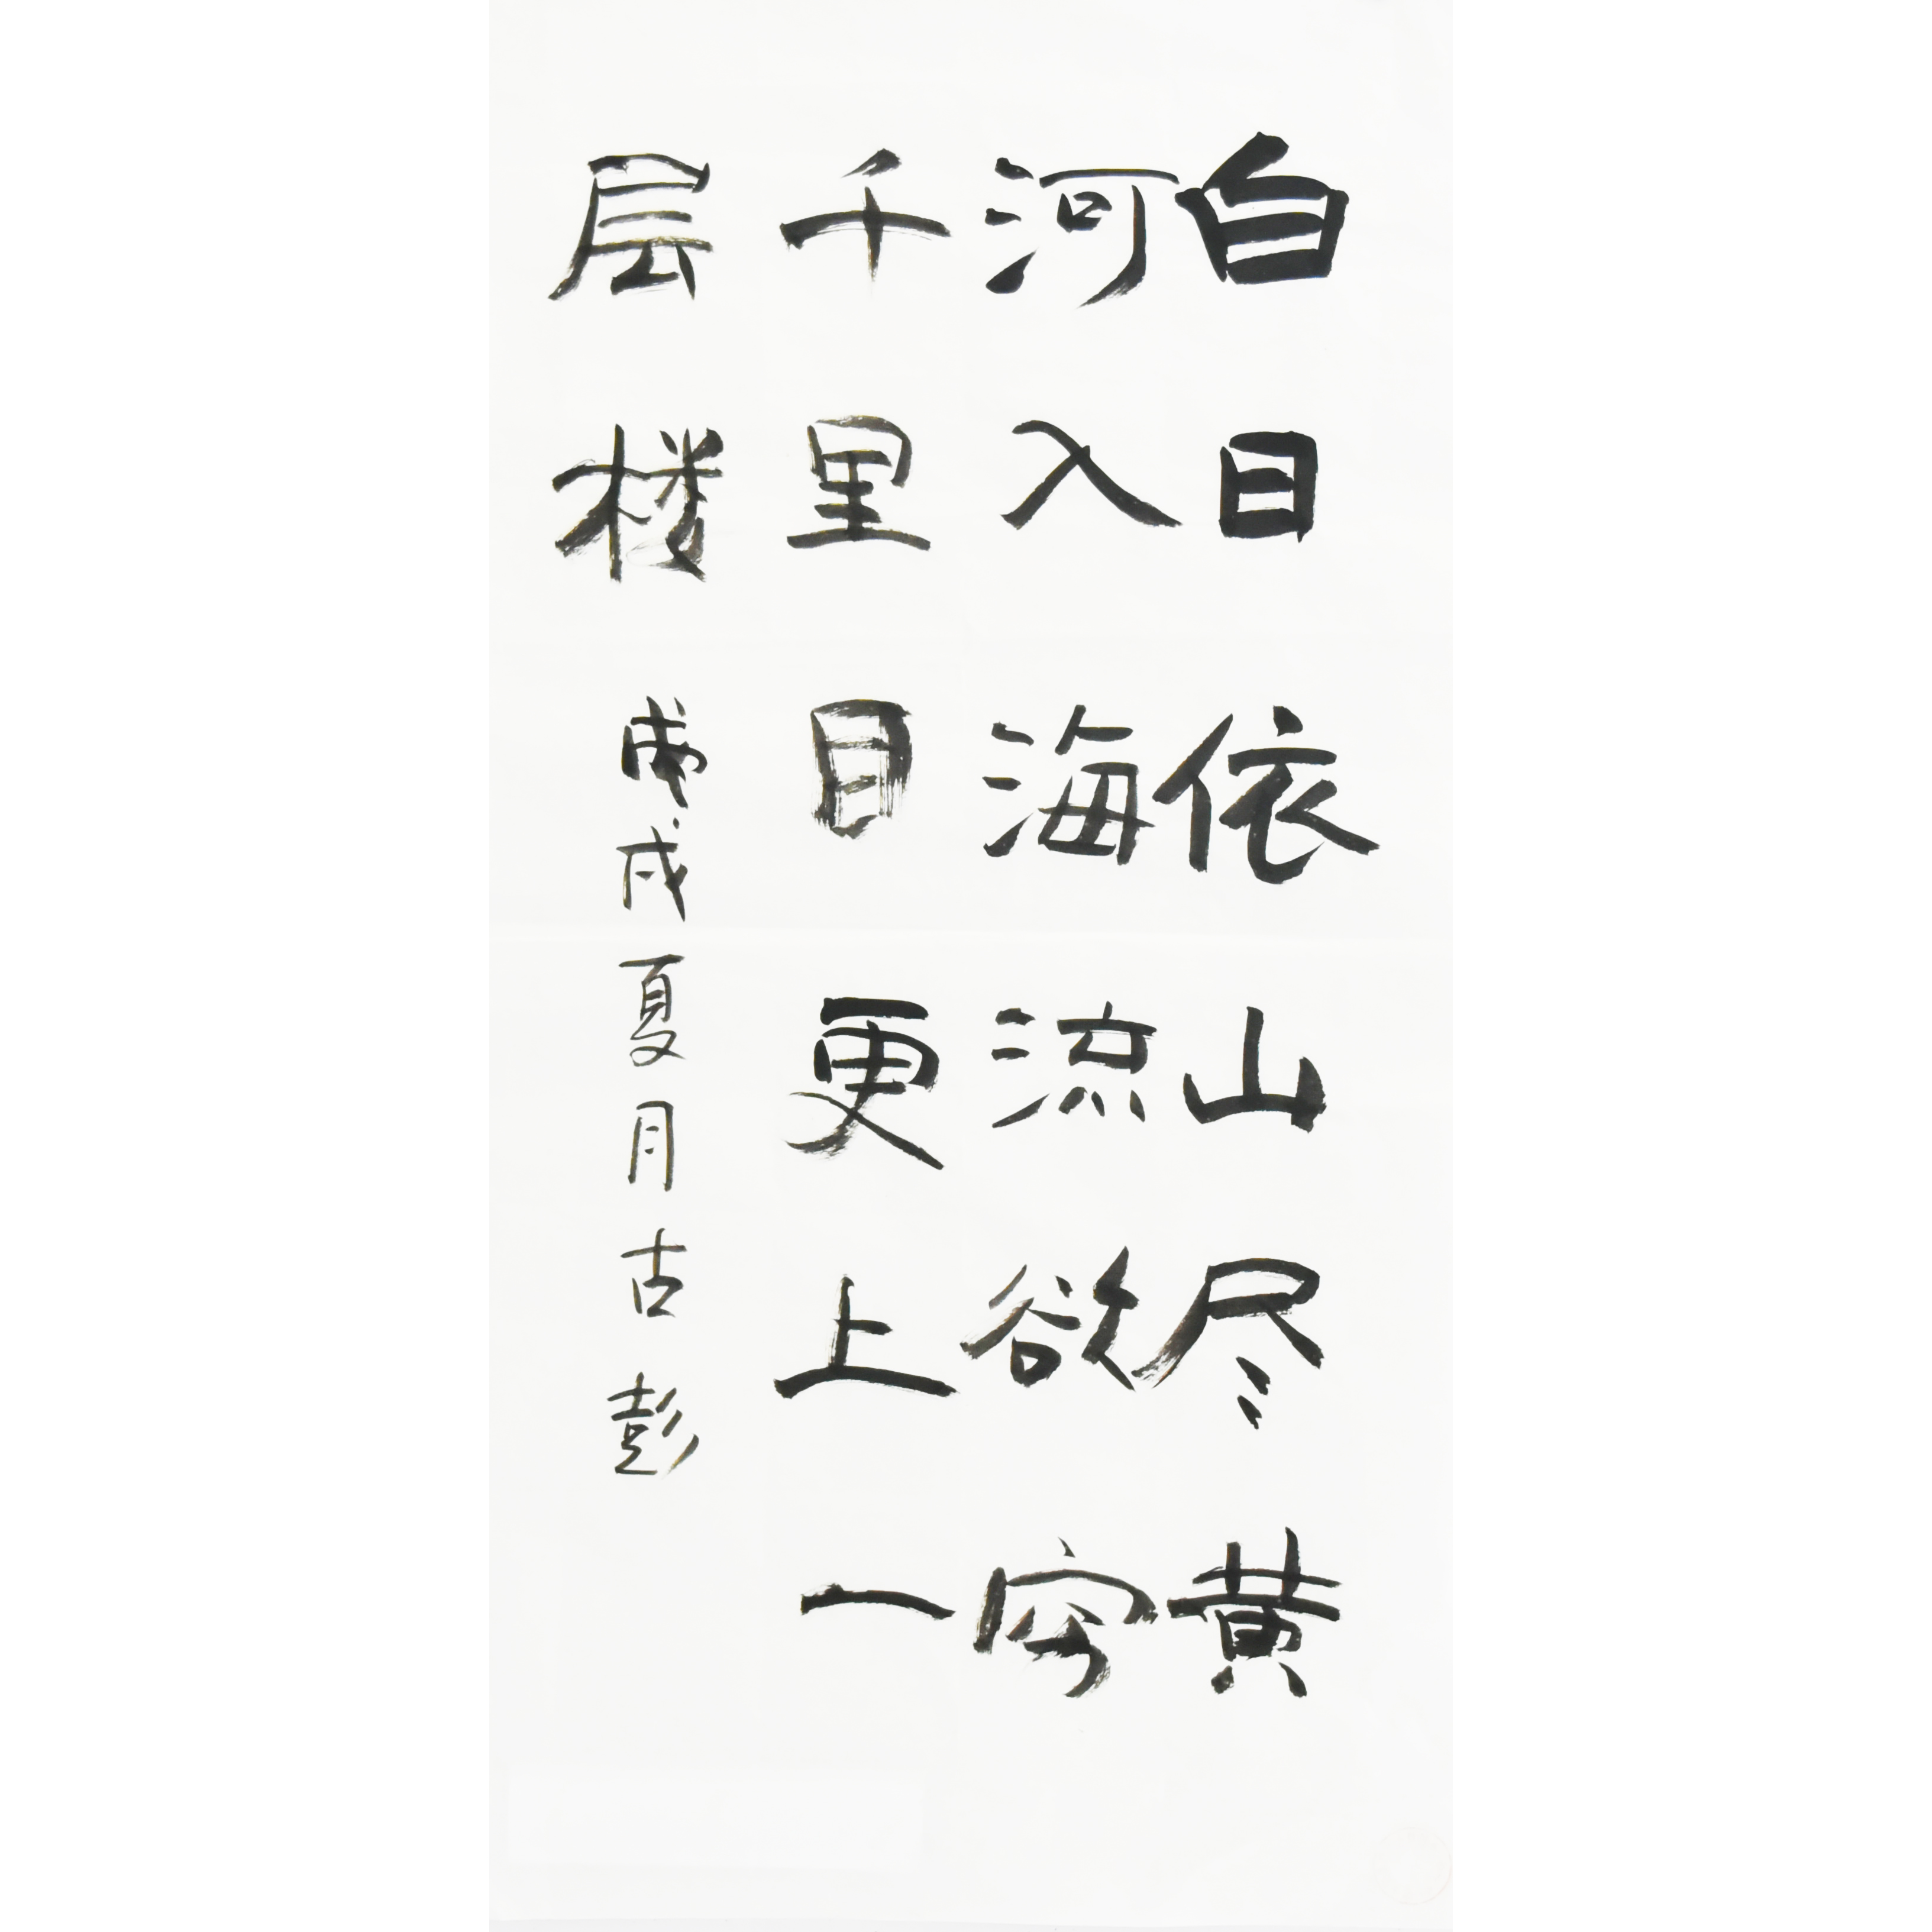 白日依山尽黄
河入海流欲穷
千里目更上一
层楼 戊戌夏月古彭